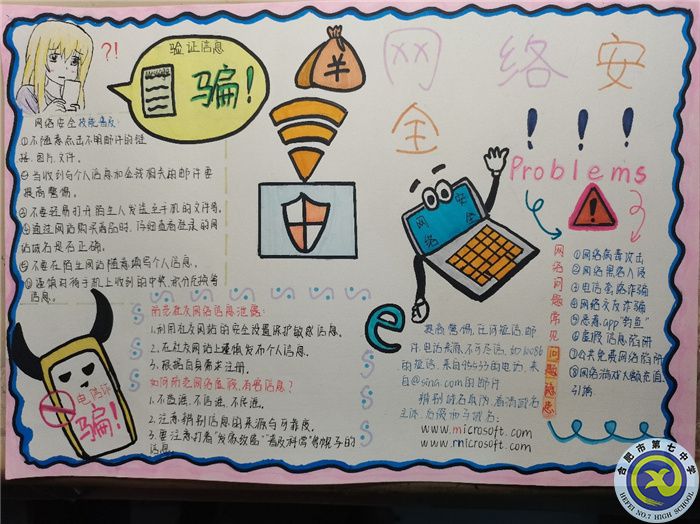 网络安全
!!!
?!
验证信息
骗!
¥
网络安全技能普及:
①不随意点击不明邮件的链
接、图片、文件。
②当收到与个人信息和金钱相关的邮件要
提高警惕。
③不要轻易打开陌生人发送至手机的文件等。
④通过网站购买商品时,仔细查看登录的网
站域名是否正确。
⑤不要在陌生网站随意填写个人信息。
⑥谨慎对待手机上收到的中奖、积分兑换等
信息。
Problems
!
网络问题常见
问题隐患
①网络病毒攻击
②网络黑客入侵
③电信网络诈骗
④网络交友诈骗
⑤恶意app"钓鱼"
⑥虚假信息陷阱
⑦公共免费网络陷阱
⑧网络游戏大额充值
引导
网络
安全
e
防范社交网络信息泄露:
1.利用社交网站的安全设置保护敏感信息。
2.在社交网站上谨慎发布个人信息。
3.根据自身需求注册。
如何防范网络虚假、有害信息?
1.不造谣、不信谣、不传谣。
2.注意辨别信息的来源与可靠度。
3.要注意打着"发家致富""普及科学"等幌子的
信息。
提高警惕,任何短信、邮
件、电话来源不可尽信,如10086
的短信、来自95533的电话、来
自@sina.com的邮件
辨别域名真伪,看清域名
主体,
www.microsoft.com
www.rnicrosoft.com
电信诈
骗!
合肥市第七中学
HEFEI NO.7 HIGH SCHOOL